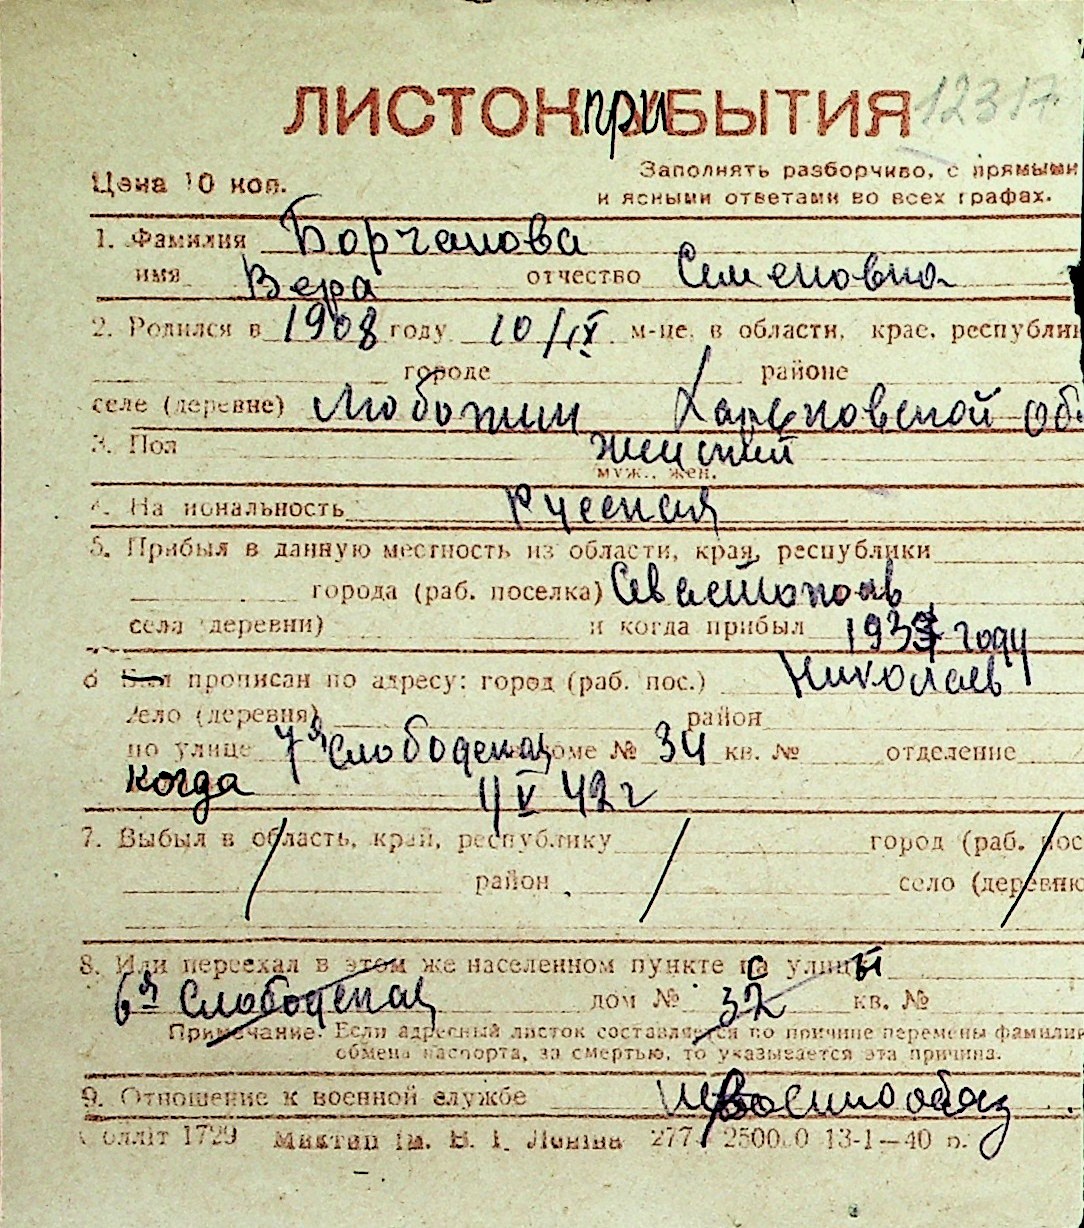 ЛИСТОК при БЫТИЯ 12317
Цена 10 коп. Заполнять разборчиво, с прямыми
и ясными ответами во всех графах.
1. Фамилия Борчанова
имя Вера отчество Семеновна
2. Родился в 1908 году 10/IX м-це, в области, крае, республик
городе районе
селе (деревне) Люботин Харьковской об
3. Пол женский
муж., жен.
4. Национальность Русская
5. Прибыл в данную местность из области, края, республики
города (раб. поселка) Севастополь
села (деревни) и когда прибыл году
6 Был прописан по адресу: город (раб. пос.) Николаев
село (деревня) район
по улице 7я Слободская доме № 34 кв. № отделение
когда 11 V 42 г
7. Выбыл в область, край, республику город (раб. пос
район село (деревню
8. Или переехал в этом же населенном пункте с улицы
6я Слободская дом № 32 кв. №
Примечание. Если адресный листок составляется по причине перемены фамилии
обмена паспорта, за смертью, то указывается эта причина.
9. Отношение к военной службе невоеннообяз
1729 ім. В. І. Леніна 13-1—40 р.